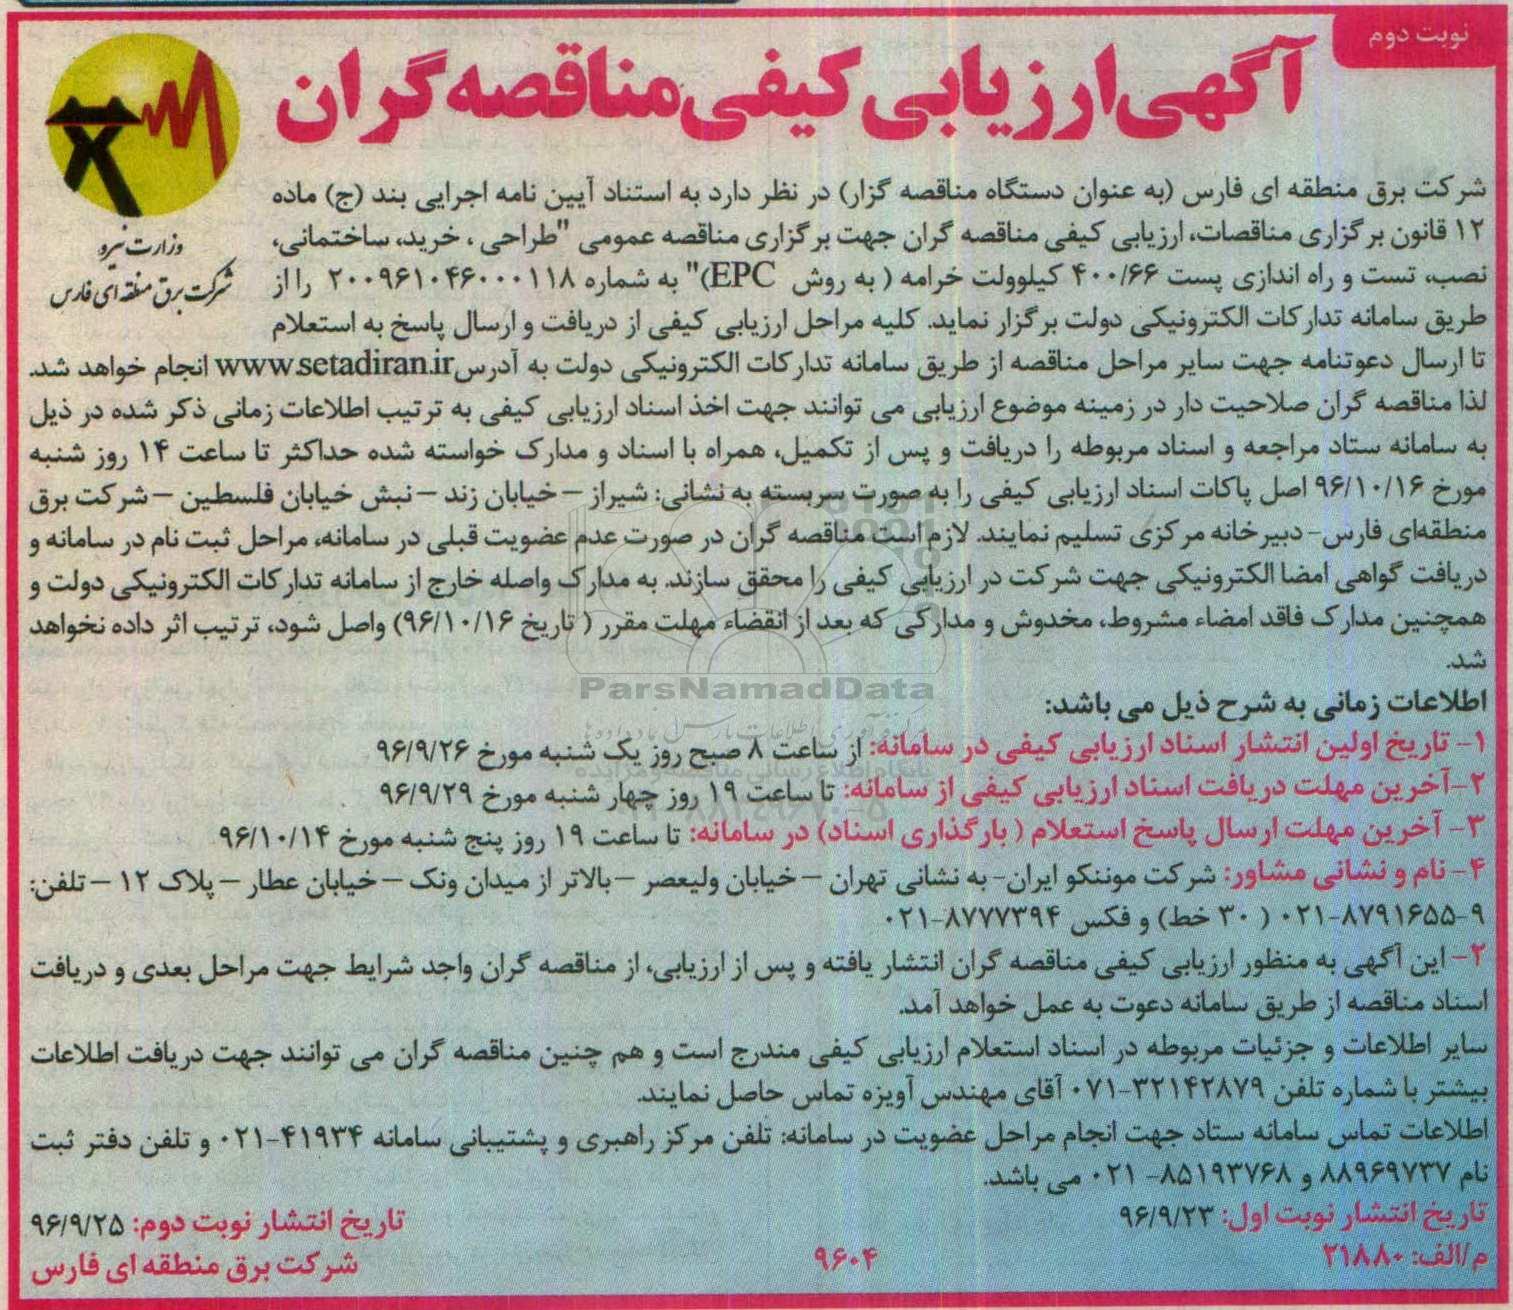 نوبت دوم
آگهی ارزیابی کیفی مناقصه گران
وزارت نیرو
شرکت برق منطقه ای فارس
شرکت برق منطقه ای فارس (به عنوان دستگاه مناقصه گزار) در نظر دارد به استناد آیین نامه اجرایی بند (ج) ماده
۱۲ قانون برگزاری مناقصات، ارزیابی کیفی مناقصه گران جهت برگزاری مناقصه عمومی "طراحی ، خرید، ساختمانی،
نصب، تست و راه اندازی پست ۴۰۰/۶۶ کیلوولت خرامه ( به روش EPC)" به شماره ۲۰۰۹۶۱۰۴۶۰۰۰۱۱۸ را از
طریق سامانه تدارکات الکترونیکی دولت برگزار نماید. کلیه مراحل ارزیابی کیفی از دریافت و ارسال پاسخ به استعلام
تا ارسال دعوتنامه جهت سایر مراحل مناقصه از طریق سامانه تدارکات الکترونیکی دولت به آدرس www.setadiran.ir انجام خواهد شد.
لذا مناقصه گران صلاحیت دار در زمینه موضوع ارزیابی می توانند جهت اخذ اسناد ارزیابی کیفی به ترتیب اطلاعات زمانی ذکر شده در ذیل
به سامانه ستاد مراجعه و اسناد مربوطه را دریافت و پس از تکمیل، همراه با اسناد و مدارک خواسته شده حداکثر تا ساعت ۱۴ روز شنبه
مورخ ۹۶/۱۰/۱۶ اصل پاکات اسناد ارزیابی کیفی را به صورت سربسته به نشانی: شیراز – خیابان زند – نبش خیابان فلسطین – شرکت برق
منطقه‌ای فارس- دبیرخانه مرکزی تسلیم نمایند. لازم است مناقصه گران در صورت عدم عضویت قبلی در سامانه، مراحل ثبت نام در سامانه و
دریافت گواهی امضا الکترونیکی جهت شرکت در ارزیابی کیفی را محقق سازند. به مدارک واصله خارج از سامانه تدارکات الکترونیکی دولت و
همچنین مدارک فاقد امضاء مشروط، مخدوش و مدارکی که بعد از انقضاء مهلت مقرر ( تاریخ ۹۶/۱۰/۱۶) واصل شود، ترتیب اثر داده نخواهد
شد.
ParsNamadData
اطلاعات زمانی به شرح ذیل می باشد:
۱- تاریخ اولین انتشار اسناد ارزیابی کیفی در سامانه: از ساعت ۸ صبح روز یک شنبه مورخ ۹۶/۹/۲۶
پایگاه اطلاع رسانی مناقصه و مزایده
۲-آخرین مهلت دریافت اسناد ارزیابی کیفی از سامانه: تا ساعت ۱۹ روز چهار شنبه مورخ ۹۶/۹/۲۹ .
۳- آخرین مهلت ارسال پاسخ استعلام ( بارگذاری اسناد) در سامانه: تا ساعت ۱۹ روز پنج شنبه مورخ ۹۶/۱۰/۱۴
۴- نام و نشانی مشاور: شرکت موننکو ایران- به نشانی تهران – خیابان ولیعصر – بالاتر از میدان ونک – خیابان عطار – پلاک ۱۲ – تلفن:
۰۲۱-۸۷۹۱۶۵۵-۹ ( ۳۰ خط) و فکس ۰۲۱-۸۷۷۷۳۹۴
۲- این آگهی به منظور ارزیابی کیفی مناقصه گران انتشار یافته و پس از ارزیابی، از مناقصه گران واجد شرایط جهت مراحل بعدی و دریافت
اسناد مناقصه از طریق سامانه دعوت به عمل خواهد آمد.
سایر اطلاعات و جزئیات مربوطه در اسناد استعلام ارزیابی کیفی مندرج است و هم چنین مناقصه گران می توانند جهت دریافت اطلاعات
بیشتر با شماره تلفن ۳۲۱۴۲۸۷۹-۰۷۱ آقای مهندس آویزه تماس حاصل نمایند.
اطلاعات تماس سامانه ستاد جهت انجام مراحل عضویت در سامانه: تلفن مرکز راهبری و پشتیبانی سامانه ۴۱۹۳۴-۰۲۱ و تلفن دفتر ثبت
نام ۸۸۹۶۹۷۳۷ و ۸۵۱۹۳۷۶۸- ۰۲۱ می باشد.
تاریخ انتشار نوبت اول: ۹۶/۹/۲۳
تاریخ انتشار نوبت دوم: ۹۶/۹/۲۵
م/الف: ۲۱۸۸۰
۹۶۰۴
شرکت برق منطقه ای فارس